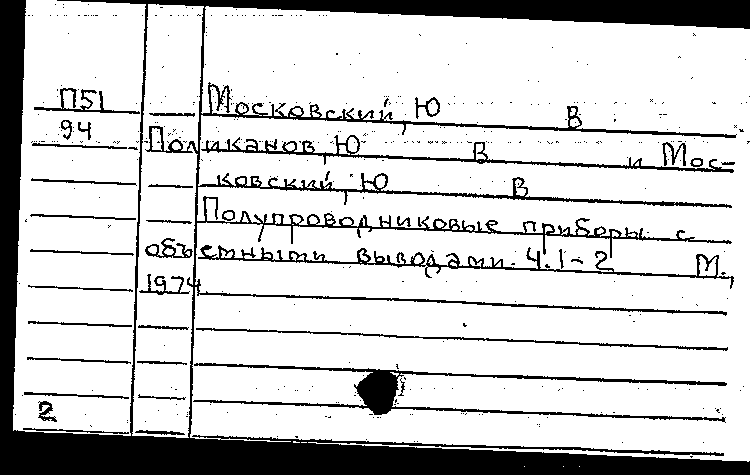 П51
94
Московский, Ю В
Поликанов, Ю В и Мос-
ковский, Ю В
Полупроводниковые приборы с
объемными выводами. Ч.1-2 М.,
1974
2